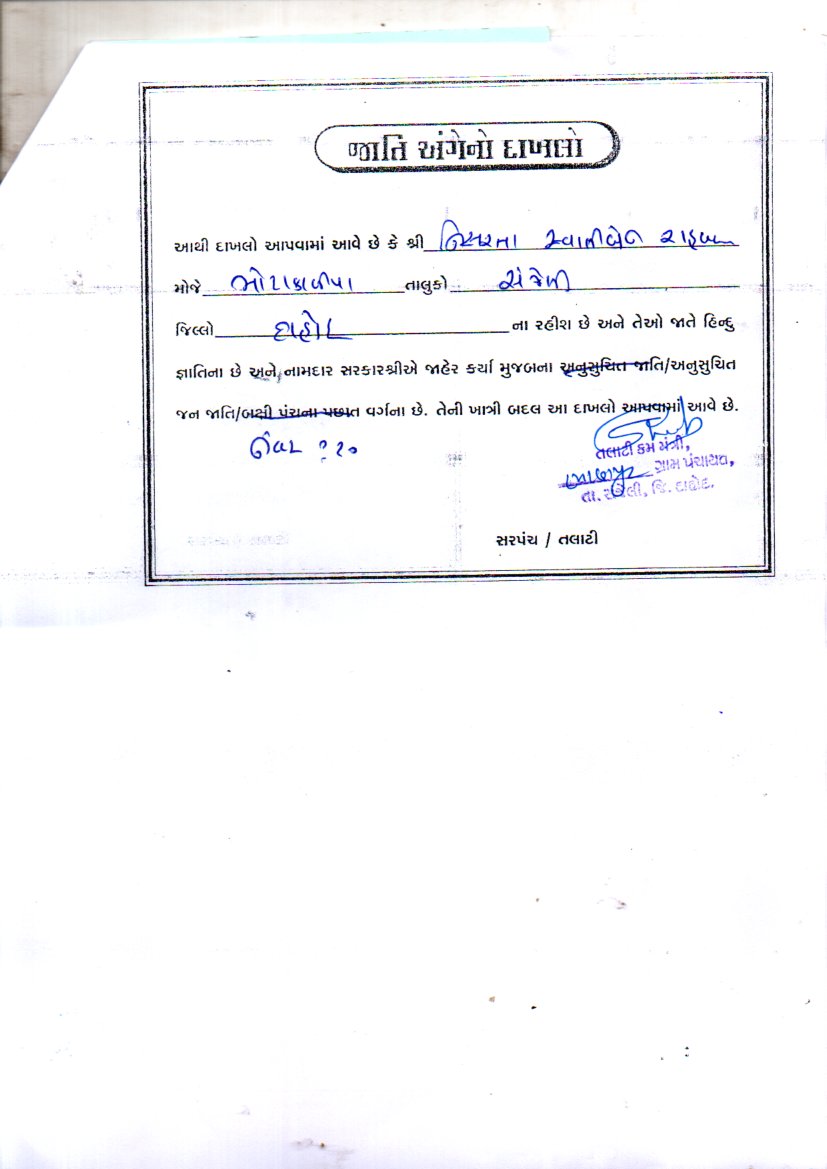 જાતિ અંગેનો દાખલો
આથી દાખલો આપવામાં આવે છે કે શ્રી
મોજે તાલુકો સંજેલી
જિલ્લો દાહોદ ના રહીશ છે અને તેઓ જાતે હિન્દુ
જ્ઞાતિના છે અને નામદાર સરકારશ્રીએ જાહેર કર્યા મુજબના અનુસુચિત જાતિ/અનુસુચિત
જન જાતિ/બક્ષી પંચના પછાત વર્ગના છે. તેની ખાત્રી બદલ આ દાખલો આપવામાં આવે છે.
તલાટી કમ મંત્રી,
ગ્રામ પંચાયત,
તા. સંજેલી, જિ. દાહોદ.
સરપંચ / તલાટી